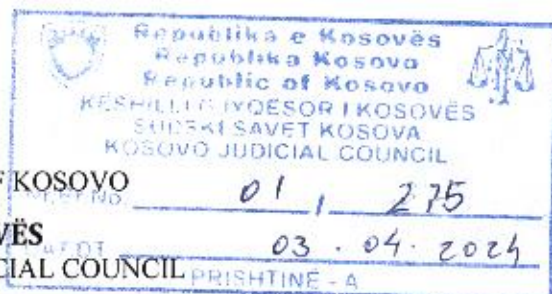 Republika e Kosovës
Republika Kosova
Republic of Kosovo
KËSHILLI GJYQËSOR I KOSOVËS
SUDSKI SAVET KOSOVA
KOSOVO JUDICIAL COUNCIL
F KOSOVO
01 / 275
VËS
03.04.2024
CIAL COUNCIL
PRISHTINË - A